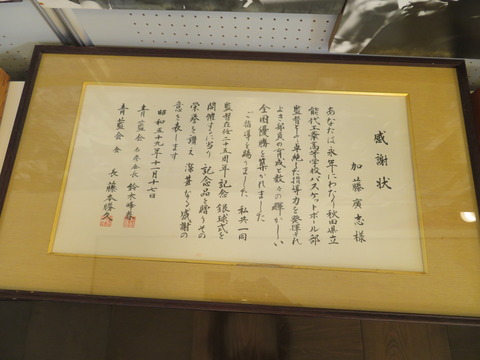 感謝状
加藤廣志様
あなたは永年にわたり秋田県立
能代工業高等学校バスケットボール部
監督として卓越した指導力を発揮され
よき部員の育成と数々の輝かしい
全国優勝を築かれました
ご指導を賜りました 私共一同
監督在任二十五周年記念銀球式を
開催するに当り 記念品を贈りその
栄誉を讃え 深甚なる感謝の
意を表します
昭和五十九年十一月十七日
青藍会 名誉会長 鈴木
青藍会 会長 藤本